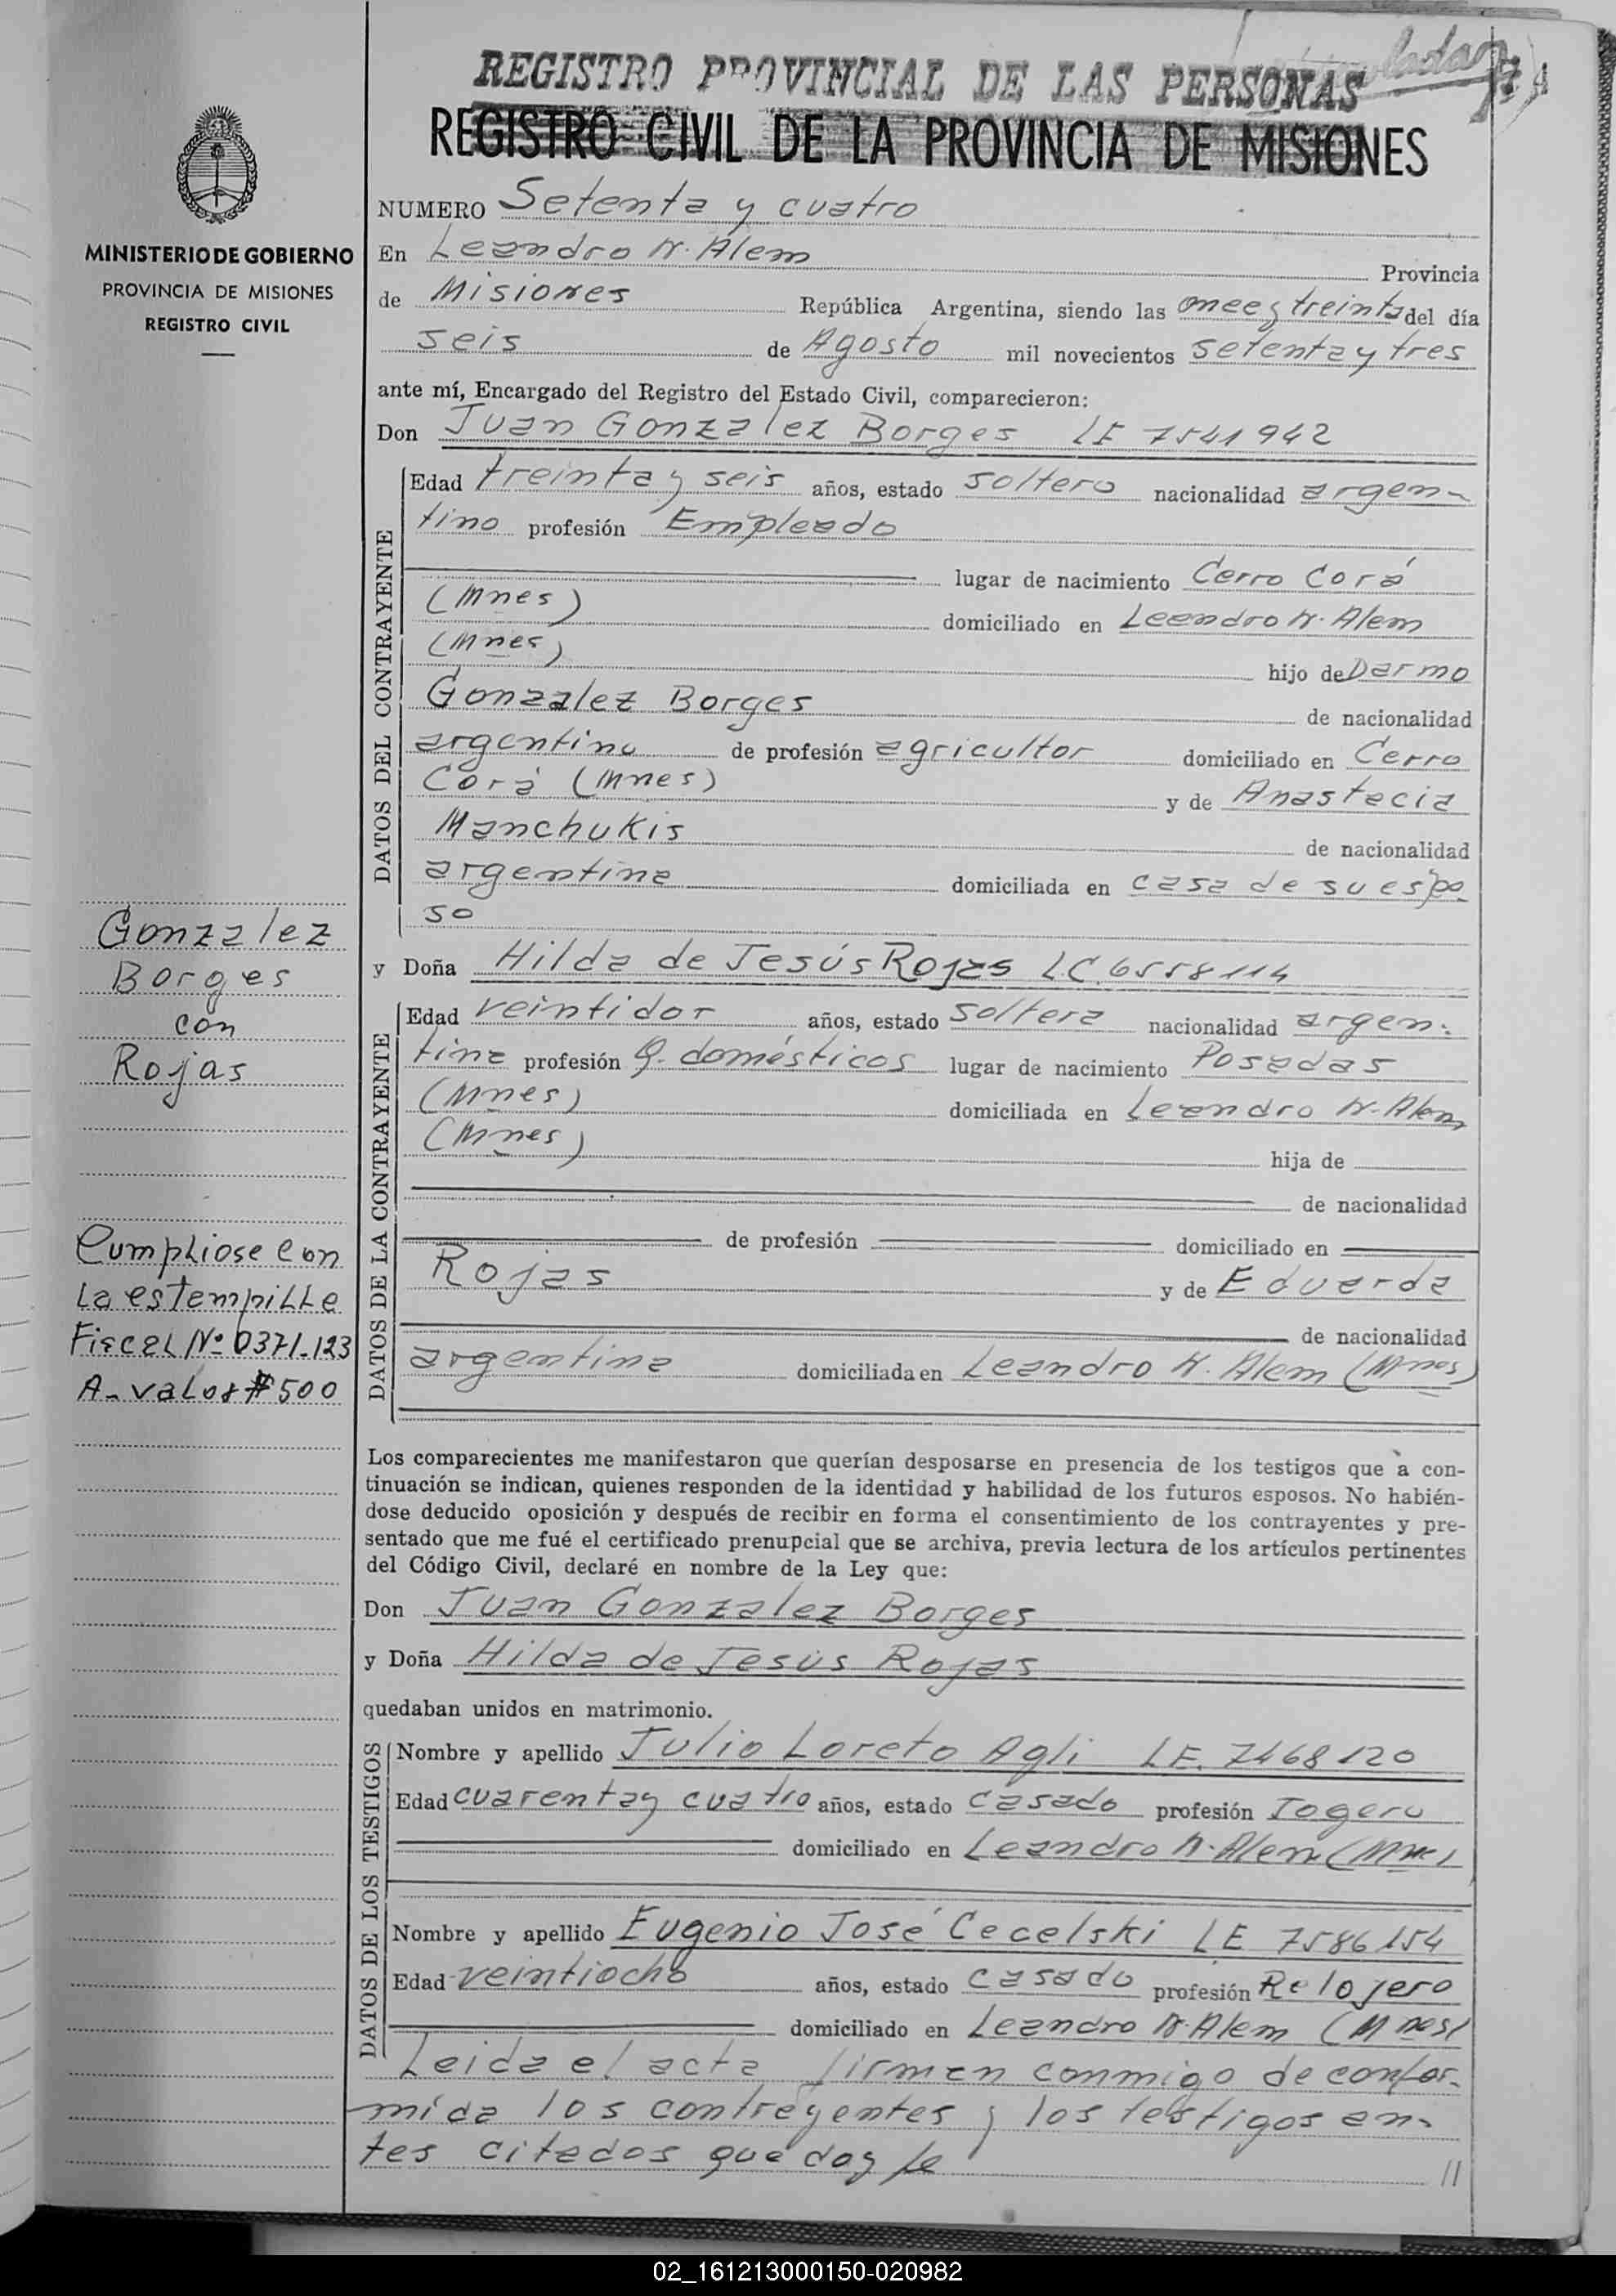 REGISTRO PROVINCIAL DE LAS PERSONAS
REGISTRO CIVIL DE LA PROVINCIA DE MISIONES
MINISTERIO DE GOBIERNO
PROVINCIA DE MISIONES
REGISTRO CIVIL
NUMERO Setenta y cuatro
En Leandro N. Alem Provincia
de Misiones República Argentina, siendo las once y treinta del día
seis de Agosto mil novecientos setenta y tres
ante mí, Encargado del Registro del Estado Civil, comparecieron:
Don Juan Gonzalez Borges LE 7541942
DATOS DEL CONTRAYENTE
Edad treinta y seis años, estado soltero nacionalidad argen-
tino profesión Empleado
lugar de nacimiento Cerro Corá
(Mnes) domiciliado en Leandro N. Alem
(Mnes) hijo de Darmo
Gonzalez Borges de nacionalidad
argentino de profesión agricultor domiciliado en Cerro
Corá (Mnes) y de Anastacia
Manchukis de nacionalidad
argentina domiciliada en casa de su espo
so
Gonzalez
Borges
con
Rojas
y Doña Hilda de Jesús Rojas LC. 6558114
DATOS DE LA CONTRAYENTE
Edad veintidos años, estado soltera nacionalidad argen-
tina profesión Q. domésticos lugar de nacimiento Posadas
(Mnes) domiciliada en Leandro N. Alem
(Mnes) hija de
de nacionalidad
de profesión domiciliado en
Rojas y de Eduarda
de nacionalidad
argentina domiciliada en Leandro N. Alem (Mnes)
Cumpliose con
la estampilla
Fiscal Nº 0371-123
A- valor $ 500
Los comparecientes me manifestaron que querían desposarse en presencia de los testigos que a con-
tinuación se indican, quienes responden de la identidad y habilidad de los futuros esposos. No habién-
dose deducido oposición y después de recibir en forma el consentimiento de los contrayentes y pre-
sentado que me fué el certificado prenupcial que se archiva, previa lectura de los artículos pertinentes
del Código Civil, declaré en nombre de la Ley que:
Don Juan Gonzalez Borges
y Doña Hilda de Jesús Rojas
quedaban unidos en matrimonio.
DATOS DE LOS TESTIGOS
Nombre y apellido Julio Loreto Agli LE. 7468120
Edad cuarenta y cuatro años, estado casado profesión Togero
domiciliado en Leandro N. Alem (Mnes)
Nombre y apellido Eugenio José Cecelski LE 7586154
Edad veintiocho años, estado casado profesión Relojero
domiciliado en Leandro N. Alem (Mnes)
Leida el acta firman conmigo de confor-
mida los contrayentes y los testigos an-
tes citados que doy fe //
02_161213000150-020982